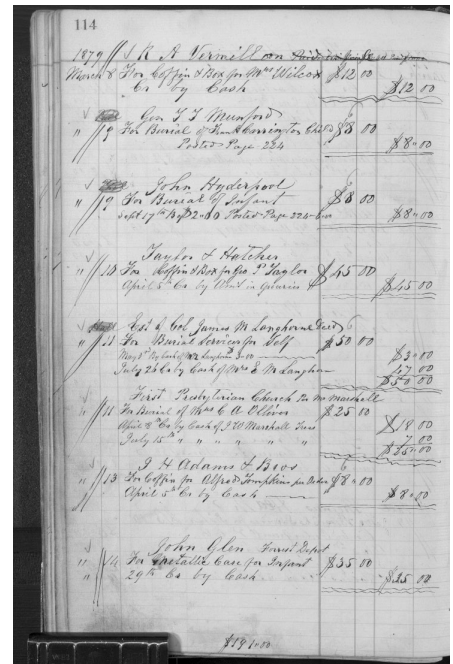 114
1879 // S R A Vermillion
March 8 For Coffin & Box for Mrs Wilcox $12 00
Cr by Cash $12 00
Geo T T Munford
" 9 For Burial of Carrington Child $8 00
Posted Page 224 $8 " 00
John Hyderpool
" 9 For Burial of Infant $8 00
Sept 17th Posted Page 224 $8 " 00
Taylor & Hatcher
" 10 For Coffin & Box for Geo P Taylor $45 00
April 5th Cr by Amt in Groceries $45 00
Est of Col James M Langhorne Decd
" 11 For Burial Services for Self $50 00
May 8th by Cash of Langhorne 3.00 $3 " 00
July 25 Cr by Cash of Mrs E M Langhorne 47 00
$50 " 00
First Presbyterian Church Per Mr Marshall
" 11 For Burial of Mrs C A Olliver $25 00
April 8th Cr by Cash of J W Marshall Tres $18 00
July 15th " " " " " " 7 00
$25 " 00
J H Adams & Bros
" 13 For Coffin for Alfred Tompkins per Order $8 " 00
April 5th Cr by Cash $8 " 00
John Glen Forrest Depot
" 14 For Metallic Case for Infant $35 00
" 29th Cr by Cash $35 00
$191 " 00